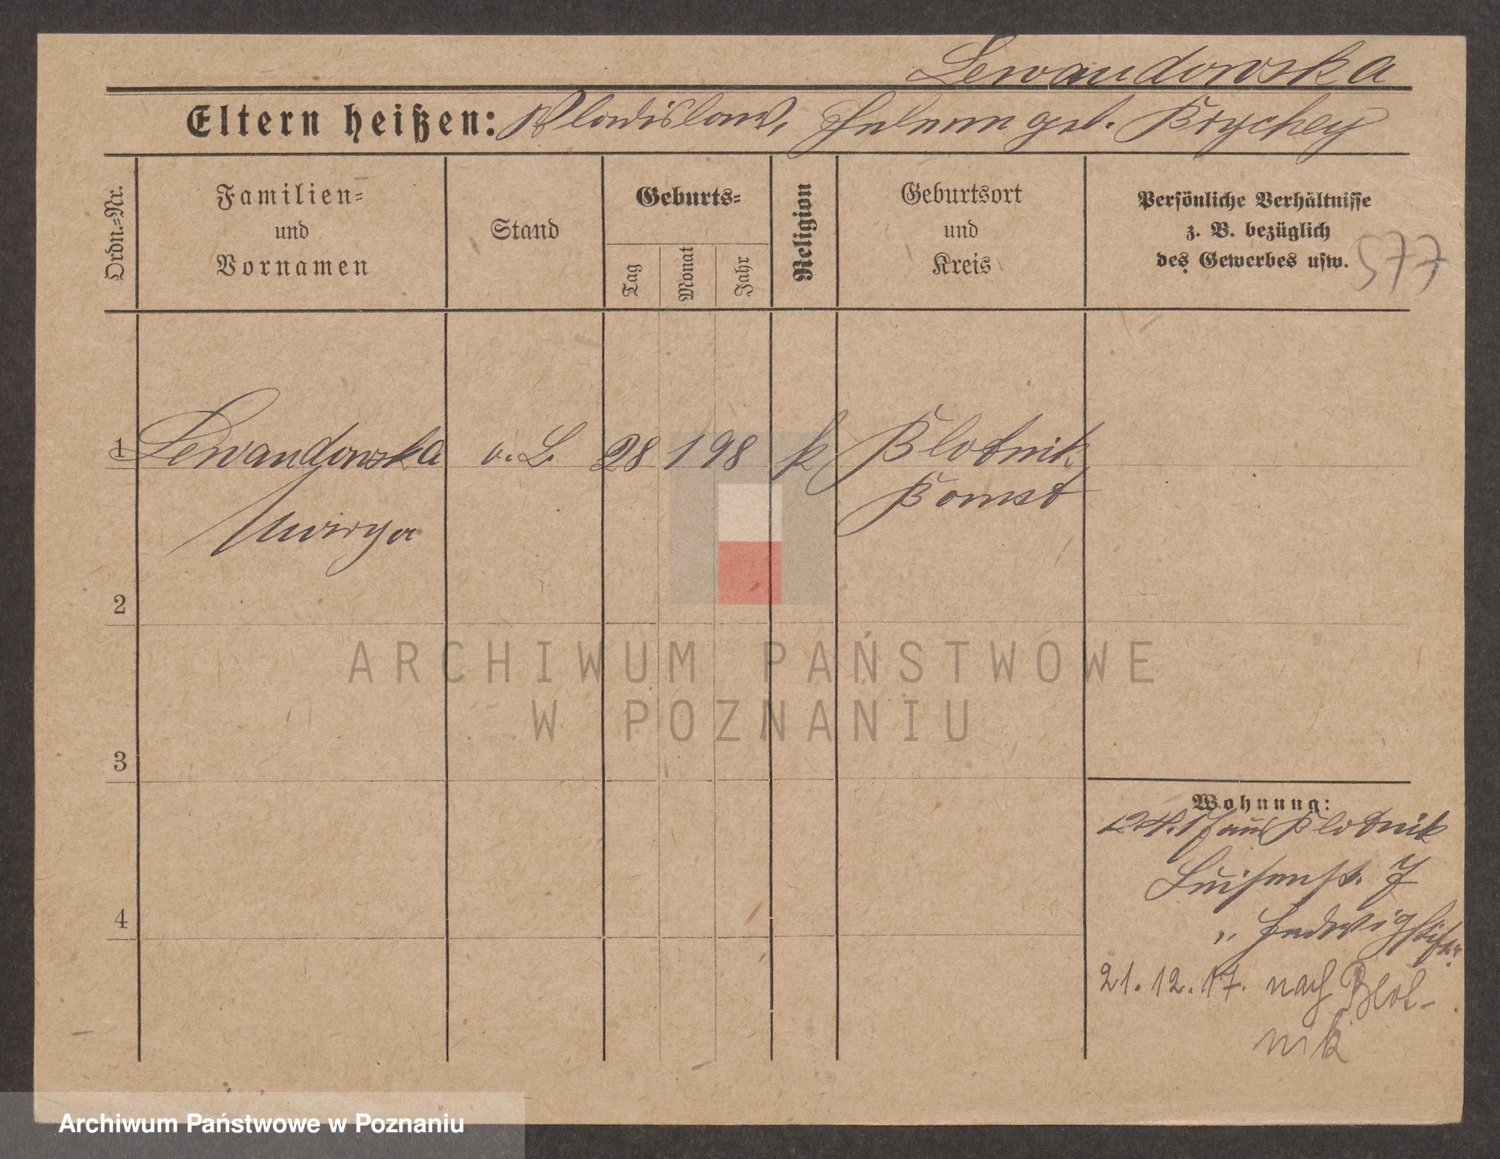 Lewandowska
Eltern heißen: Wladislaw, Helena geb. Brychcy
Ordn.-Nr.
Familien-
und
Vornamen
Stand
Geburts-
Tag
Monat
Jahr
Religion
Geburtsort
und
Kreis
Persönliche Verhältnisse
z. B. bezüglich
des Gewerbes usw.
577
1 Lewandowska v. L. 28 1 98 k Blotnik
Bomst
2
ARCHIWUM PAŃSTWOWE
W POZNANIU
3
Wohnung:
aus Blotnik
Luisenstr. 7
" Hedwigstift
4
21.12.17. nach Blot-
nik
Archiwum Państwowe w Poznaniu